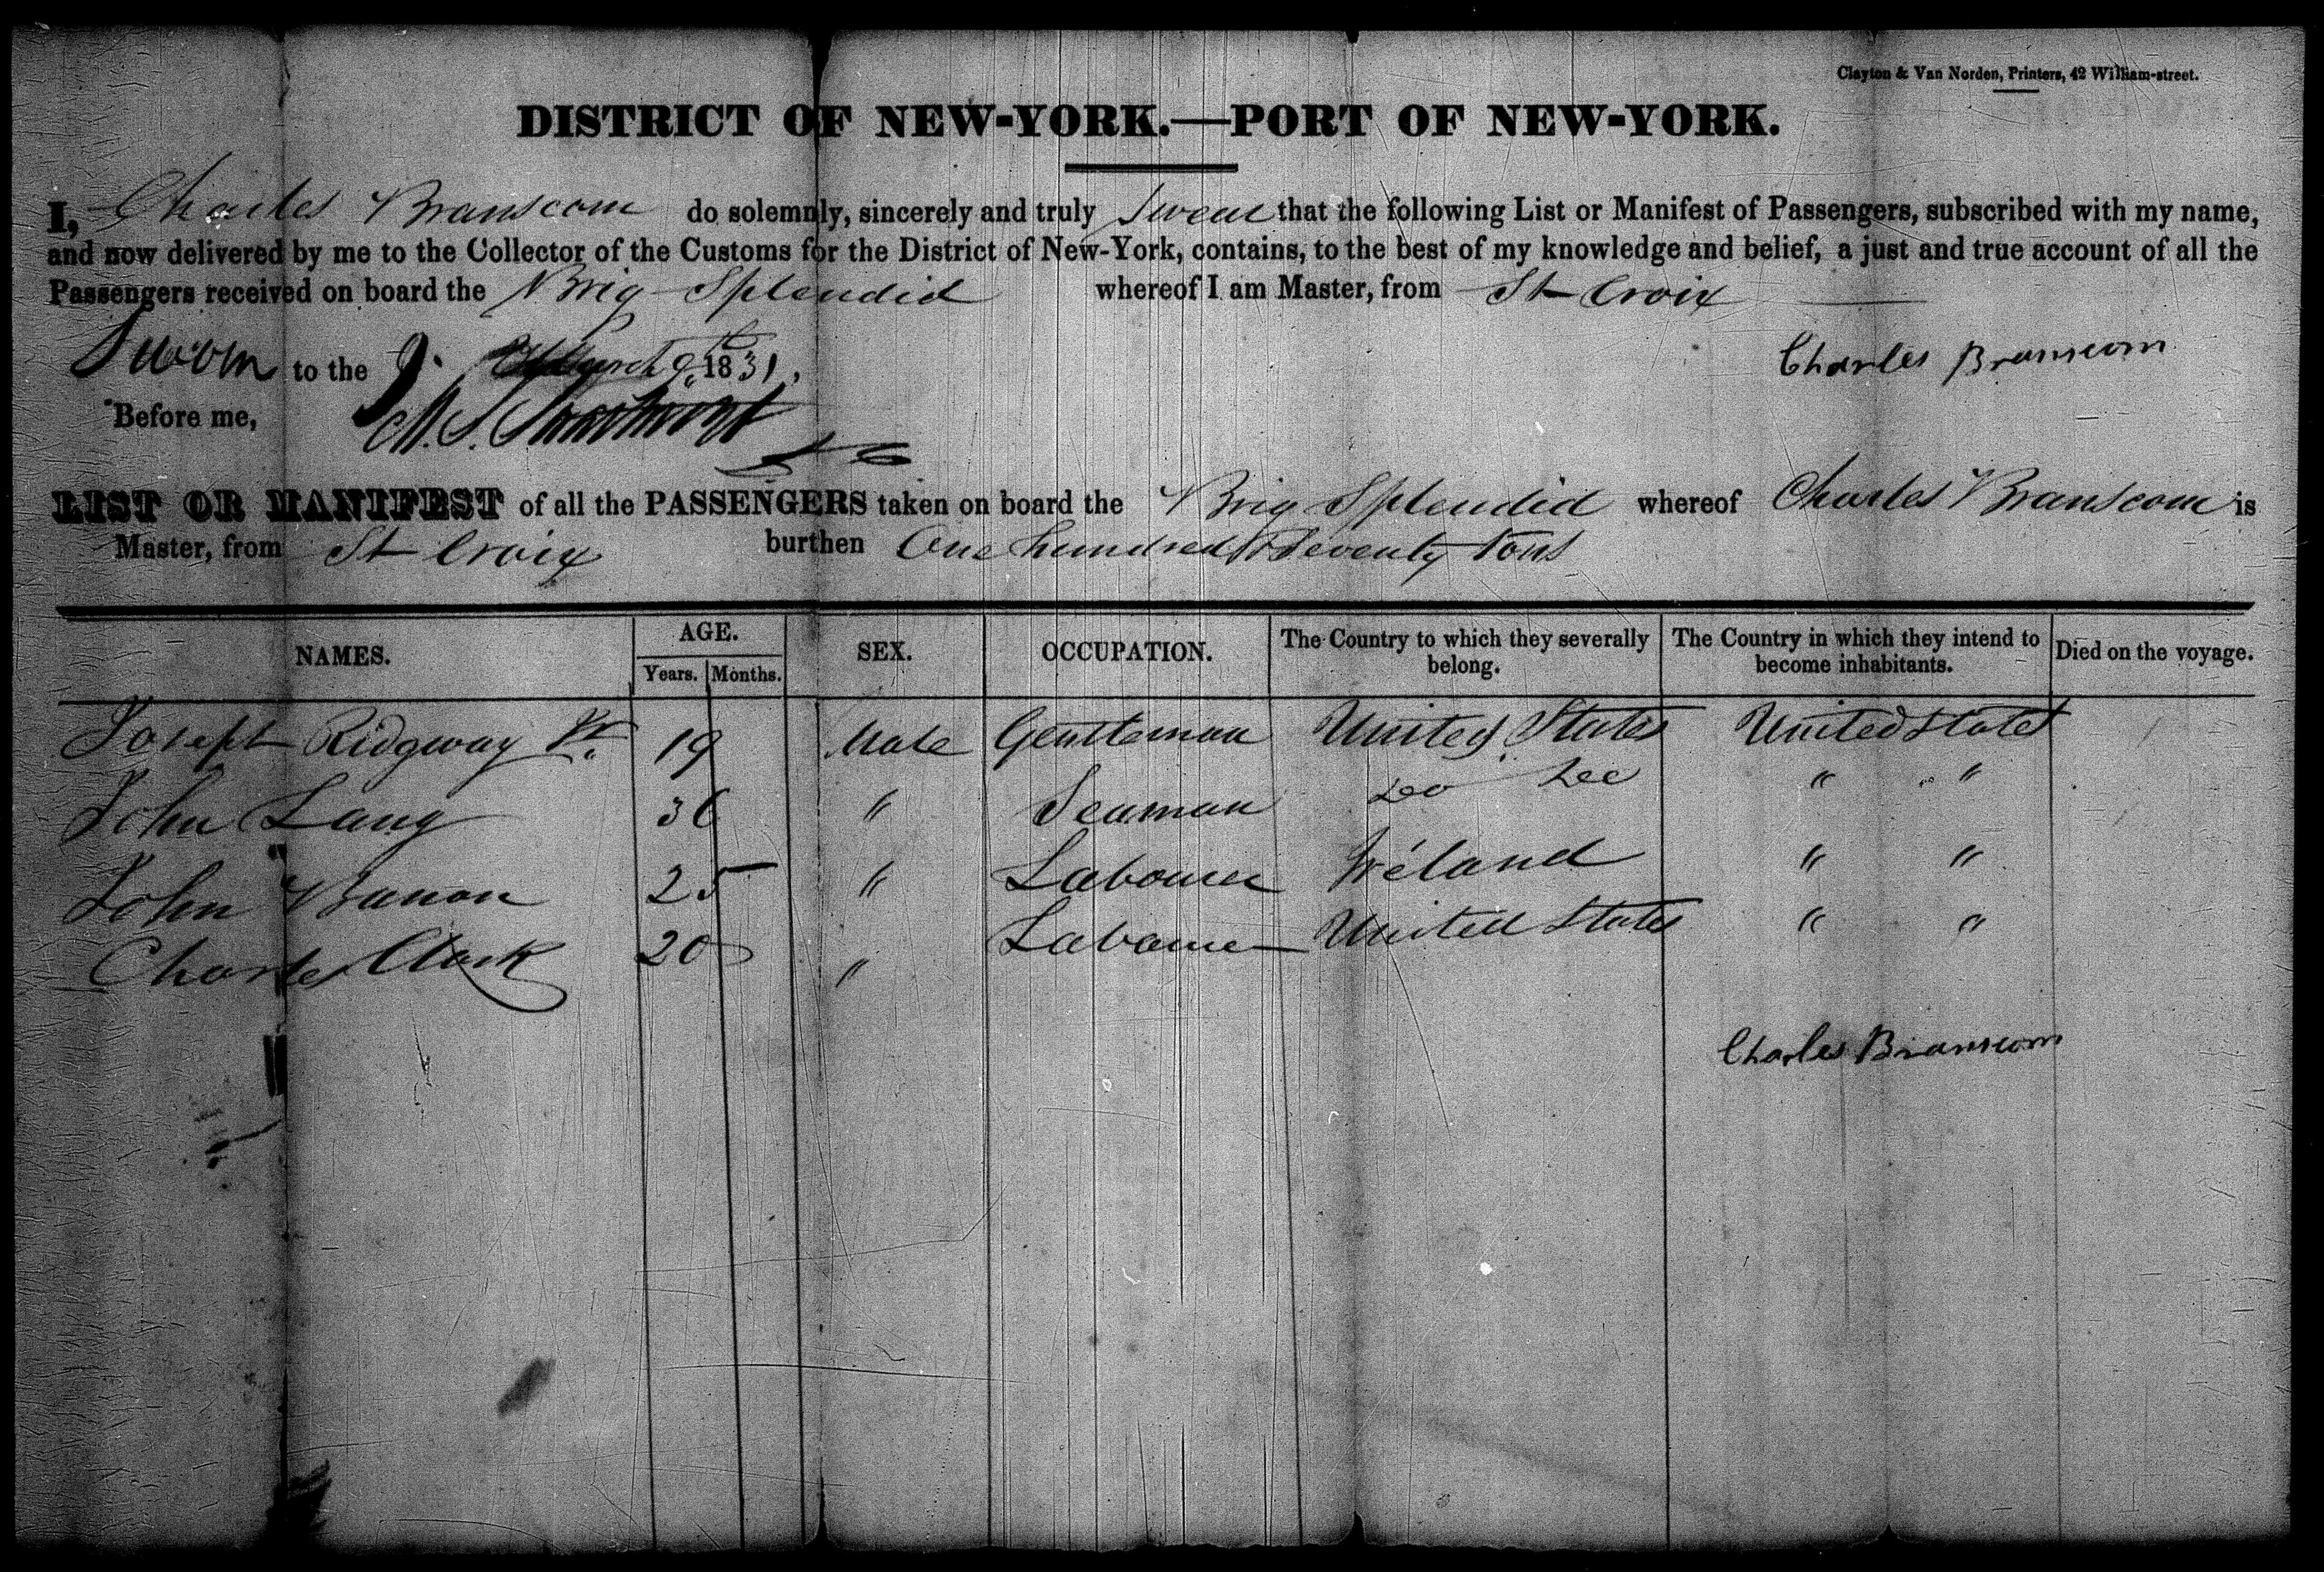 Clayton & Van Norden, Printers, 42 William-street.
DISTRICT OF NEW-YORK.—PORT OF NEW-YORK.
I, Charles Branscom do solemnly, sincerely and truly Swear that the following List or Manifest of Passengers, subscribed with my name,
and now delivered by me to the Collector of the Customs for the District of New-York, contains, to the best of my knowledge and belief, a just and true account of all the
Passengers received on board the Brig Splendid whereof I am Master, from St Croix
Sworn to the 9. March 9th 1831,
Charles Branscom
Before me,
LIST OR MANIFEST of all the PASSENGERS taken on board the Brig Splendid whereof Charles Branscom is
Master, from St Croix burthen One hundred & Seventy Tons
NAMES. AGE. Years. Months. SEX. OCCUPATION. The Country to which they severally belong. The Country in which they intend to become inhabitants. Died on the voyage.
Joseph Ridgway 19 Male Gentleman United States United States
John Lang 36 " Seaman Do Do " "
John Banon 25 " Labourer Ireland " "
Charles Clark 20 " Labourer United States " "
Charles Branscom